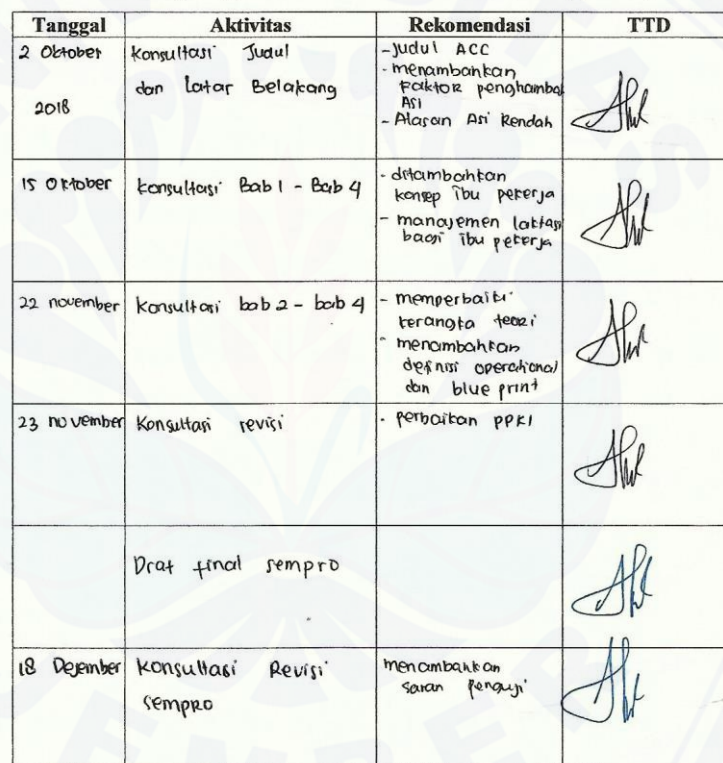 Tanggal Aktivitas Rekomendasi TTD
2 Oktober
2018
Konsultasi Judul
dan Latar Belakang
- Judul ACC
- menambahkan
Faktor penghambat
ASI
- Alasan Asi Rendah
15 Oktober
Konsultasi Bab 1 - Bab 4
- ditambahkan
konsep ibu pekerja
- manajemen laktasi
bagi ibu pekerja
22 november
Konsultasi bab 2 - bab 4
- memperbaiki
kerangka teori
- menambahkan
definisi operational
dan blue print
23 november
Konsultasi revisi
- perbaikan PPKI
Drat final sempro
18 Desember
Konsultasi Revisi
sempro
menambahkan
saran penguji